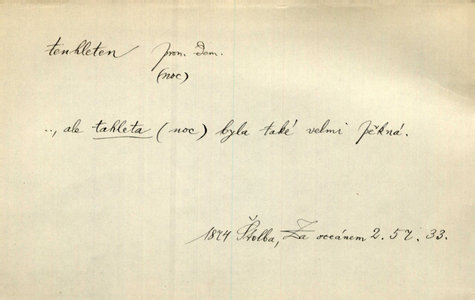 tenhleten pron. dem.
(noc)
.., ale tahleta (noc) byla také velmi pěkná.
1874 Štolba, Za oceánem 2. 57. 33.